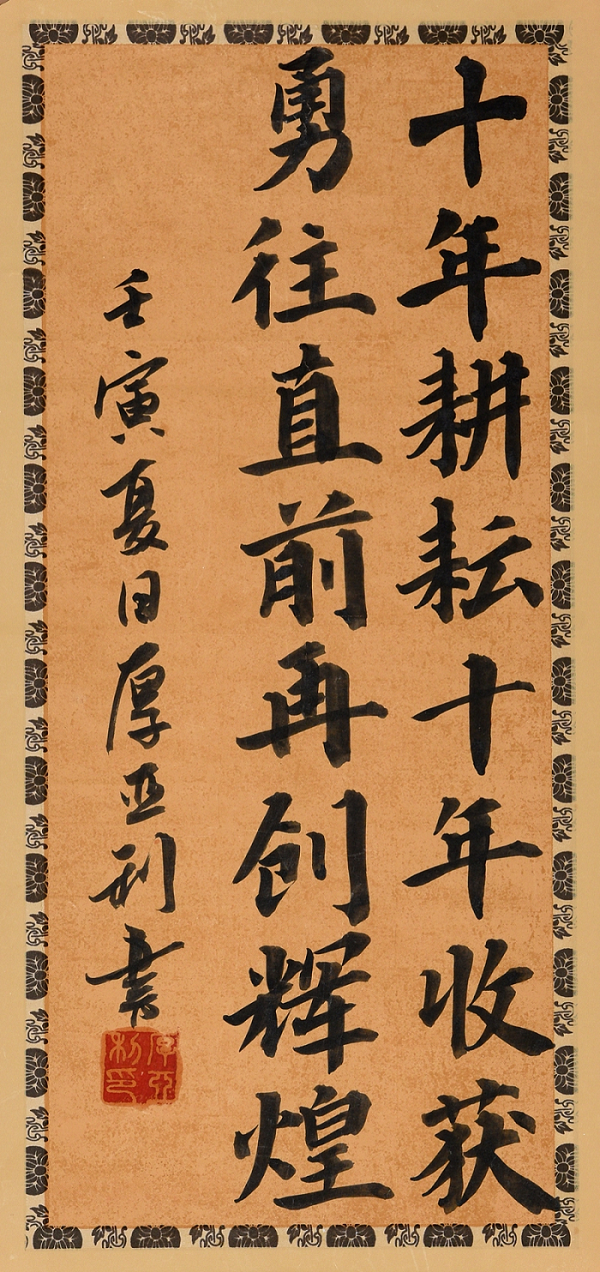 十年耕耘十年收获
勇往直前再创辉煌
壬寅夏日厚亚利书
厚亚利印